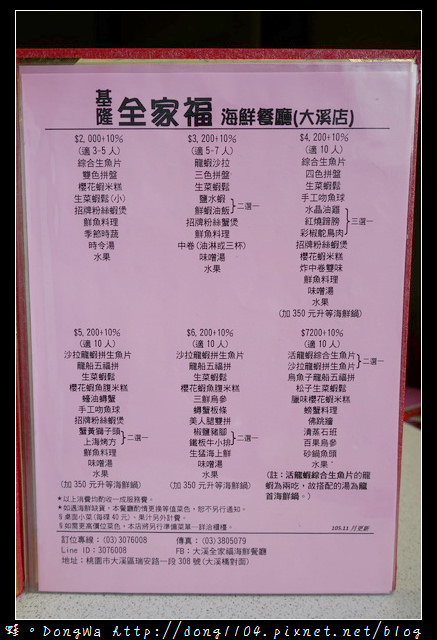 基隆 全家福 海鮮餐廳(大溪店)
$2,000+10%
(適 3-5 人)
綜合生魚片
雙色拼盤
櫻花蝦米糕
生菜蝦鬆(小)
招牌粉絲蝦煲
鮮魚料理
季節時蔬
時令湯
水果
$3,200+10%
(適 5-7 人)
龍蝦沙拉
三色拼盤
生菜蝦鬆
鹽水蝦
鮮蝦油飯
二選一
招牌粉絲蟹煲
鮮魚料理
中卷(油淋或三杯)
味噌湯
水果
$4,200+10%
(適 10 人)
綜合生魚片
四色拼盤
生菜蝦鬆
手工吻魚球
水晶油雞
紅燒蹄膀
彩椒鴕鳥肉
三選一
招牌粉絲蝦煲
櫻花蝦米糕
炸中卷雙味
鮮魚料理
味噌湯
水果
(加 350 元升等海鮮鍋)
$5,200+10%
(適 10 人)
沙拉龍蝦拼生魚片
龍船五福拼
生菜蝦鬆
櫻花蝦魚腹米糕
鰻油蟳蟹
手工吻魚球
招牌粉絲蝦煲
蟹黃獅子頭
上海烤方
二選一
鮮魚料理
味噌湯
水果
(加 350 元升等海鮮鍋)
$6,200+10%
(適 10 人)
沙拉龍蝦拼生魚片
龍船五福拼
生菜蝦鬆
櫻花蝦魚腹米糕
三鮮烏參
蟳蟹板條
美人腿雙拼
椒鹽豬腳
鐵板牛小排
二選一
生猛海上鮮
味噌湯
水果
(加 350 元升等海鮮鍋)
$7200+10%
(適 10 人)
活龍蝦綜合生魚片
沙拉龍蝦拼生魚片
二選一
烏魚子龍船五福拼
松子生菜蝦鬆
臘味櫻花蝦米糕
螃蟹料理
佛跳牆
清蒸石斑
百果烏參
砂鍋魚頭
水果
(註：活龍蝦綜合生魚片的龍
蝦為兩吃，故搭配的湯為龍
首海鮮鍋。)
*以上消費均酌收一成服務費。
*如遇海鮮缺貨，本餐廳酌情更換等值菜色，恕不另行通知。
§桌面小菜(每碟 40元)、果汁另外計費。
§如需更高價位菜色，本店將另行準備菜單…詳洽櫃檯。
105.11 月更新
訂位專線：(03)3076008 傳真：(03)3805079
Line ID：3076008 FB：大溪全家福海鮮餐廳
地址：桃園市大溪區瑞安路一段 308 號(大溪橋對面)
蛙。DongWa http://dong1104.pixnet.net/blog